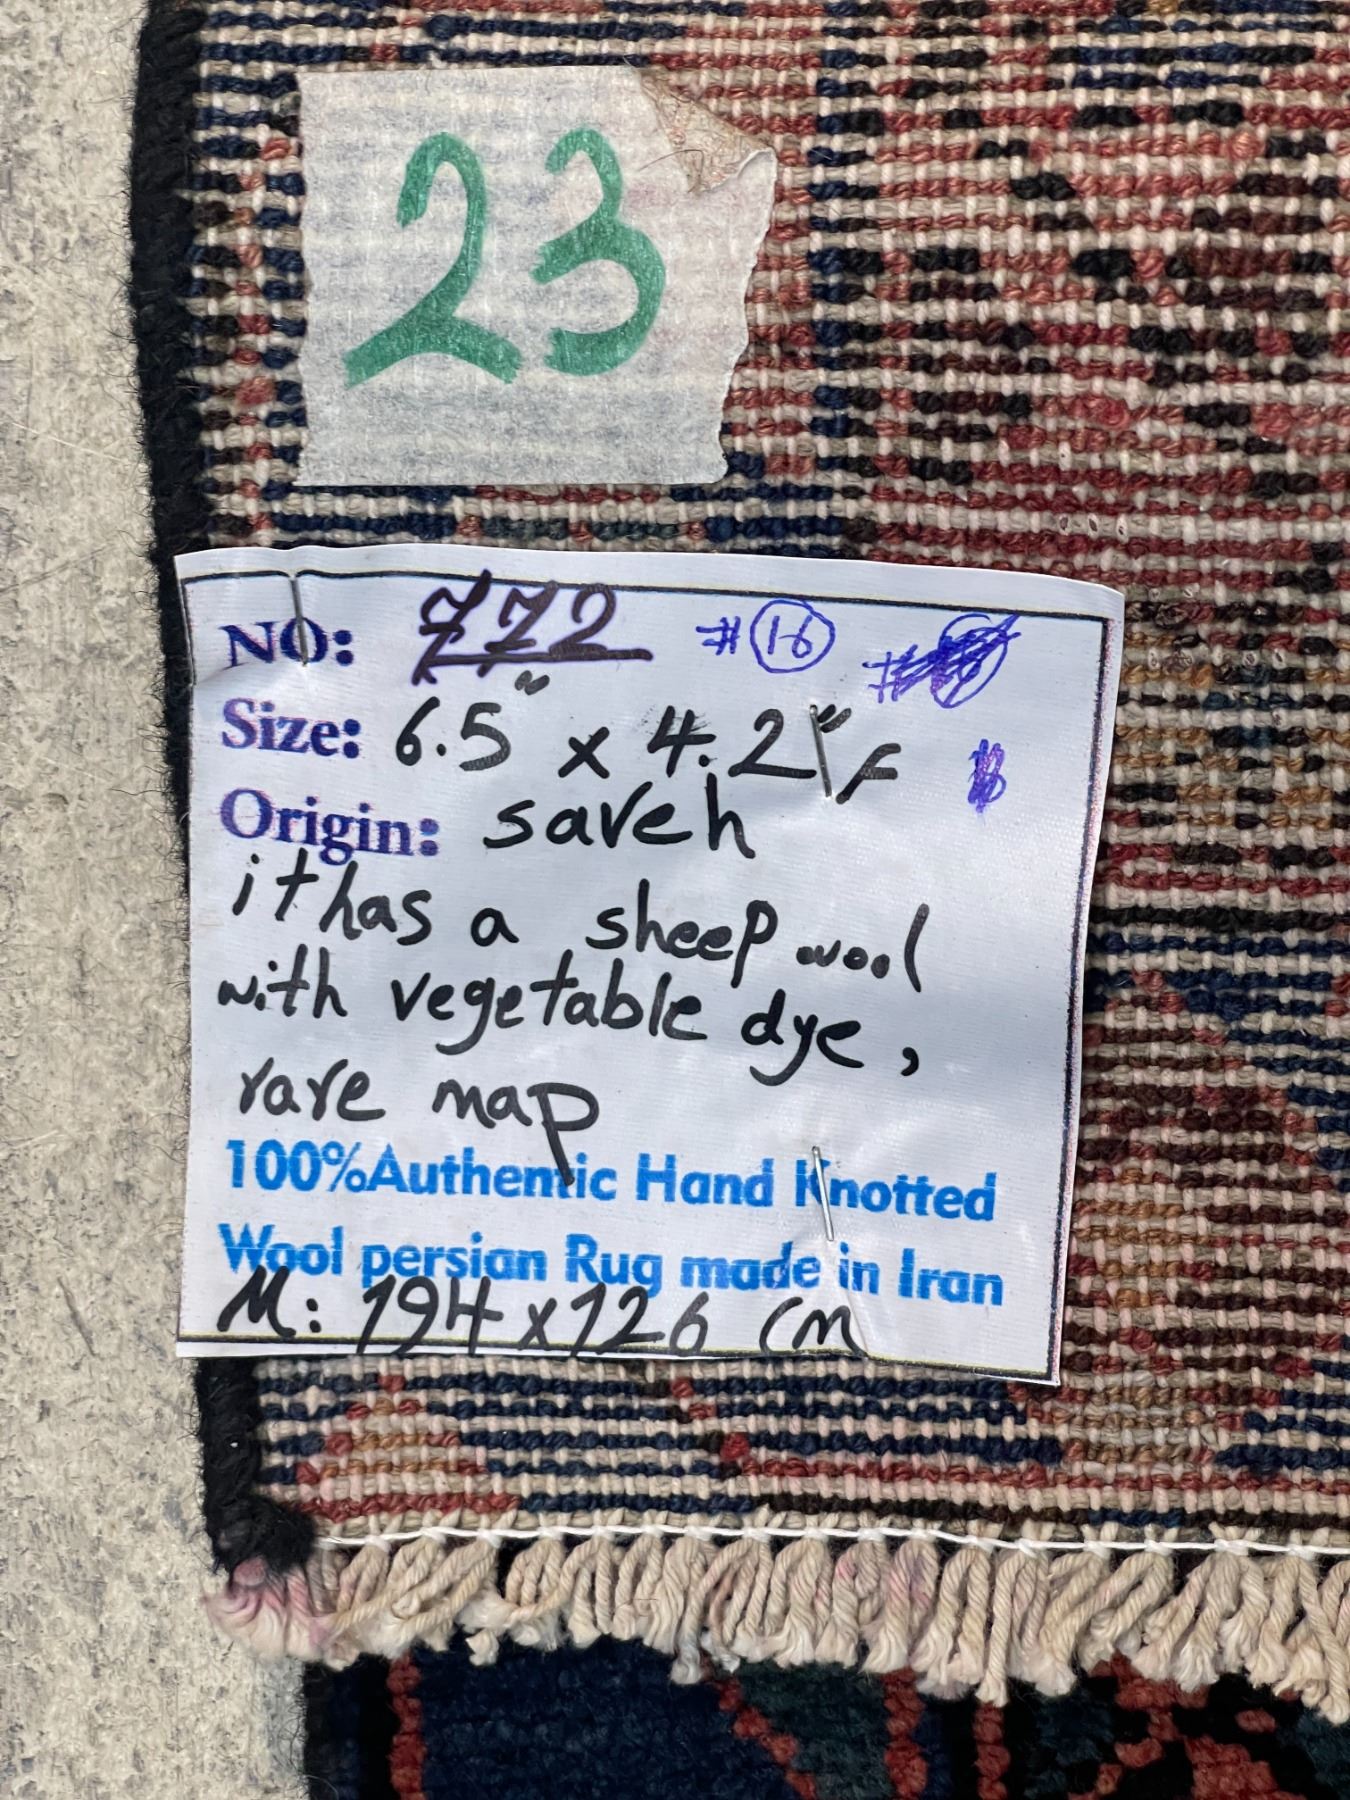 23
NO: 772 #16
Size: 6.5" x 4.2" F
Origin: saveh
it has a sheep wool
with vegetable dye,
rare map
100%Authentic Hand Knotted
Wool persian Rug made in Iran
M: 194 x 126 cm